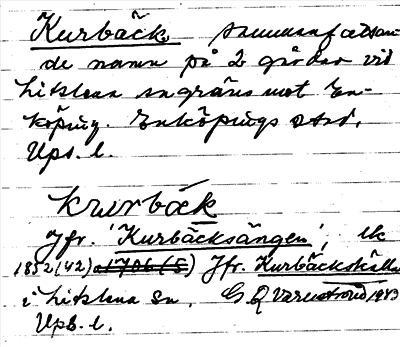 Kurbäck sammanfattan-
de namn på 2 gårdar vid
Litslena sngräns mot En-
köping. Enköpings stad,
Ups. l.
Kurbäck
Jfr. 'Kurbäcksängen', lk
1852 (42) a1706 (5) Jfr. Kurbäckskälla
i Litslena sn. G Q Varenstrond 1943
Ups. l.